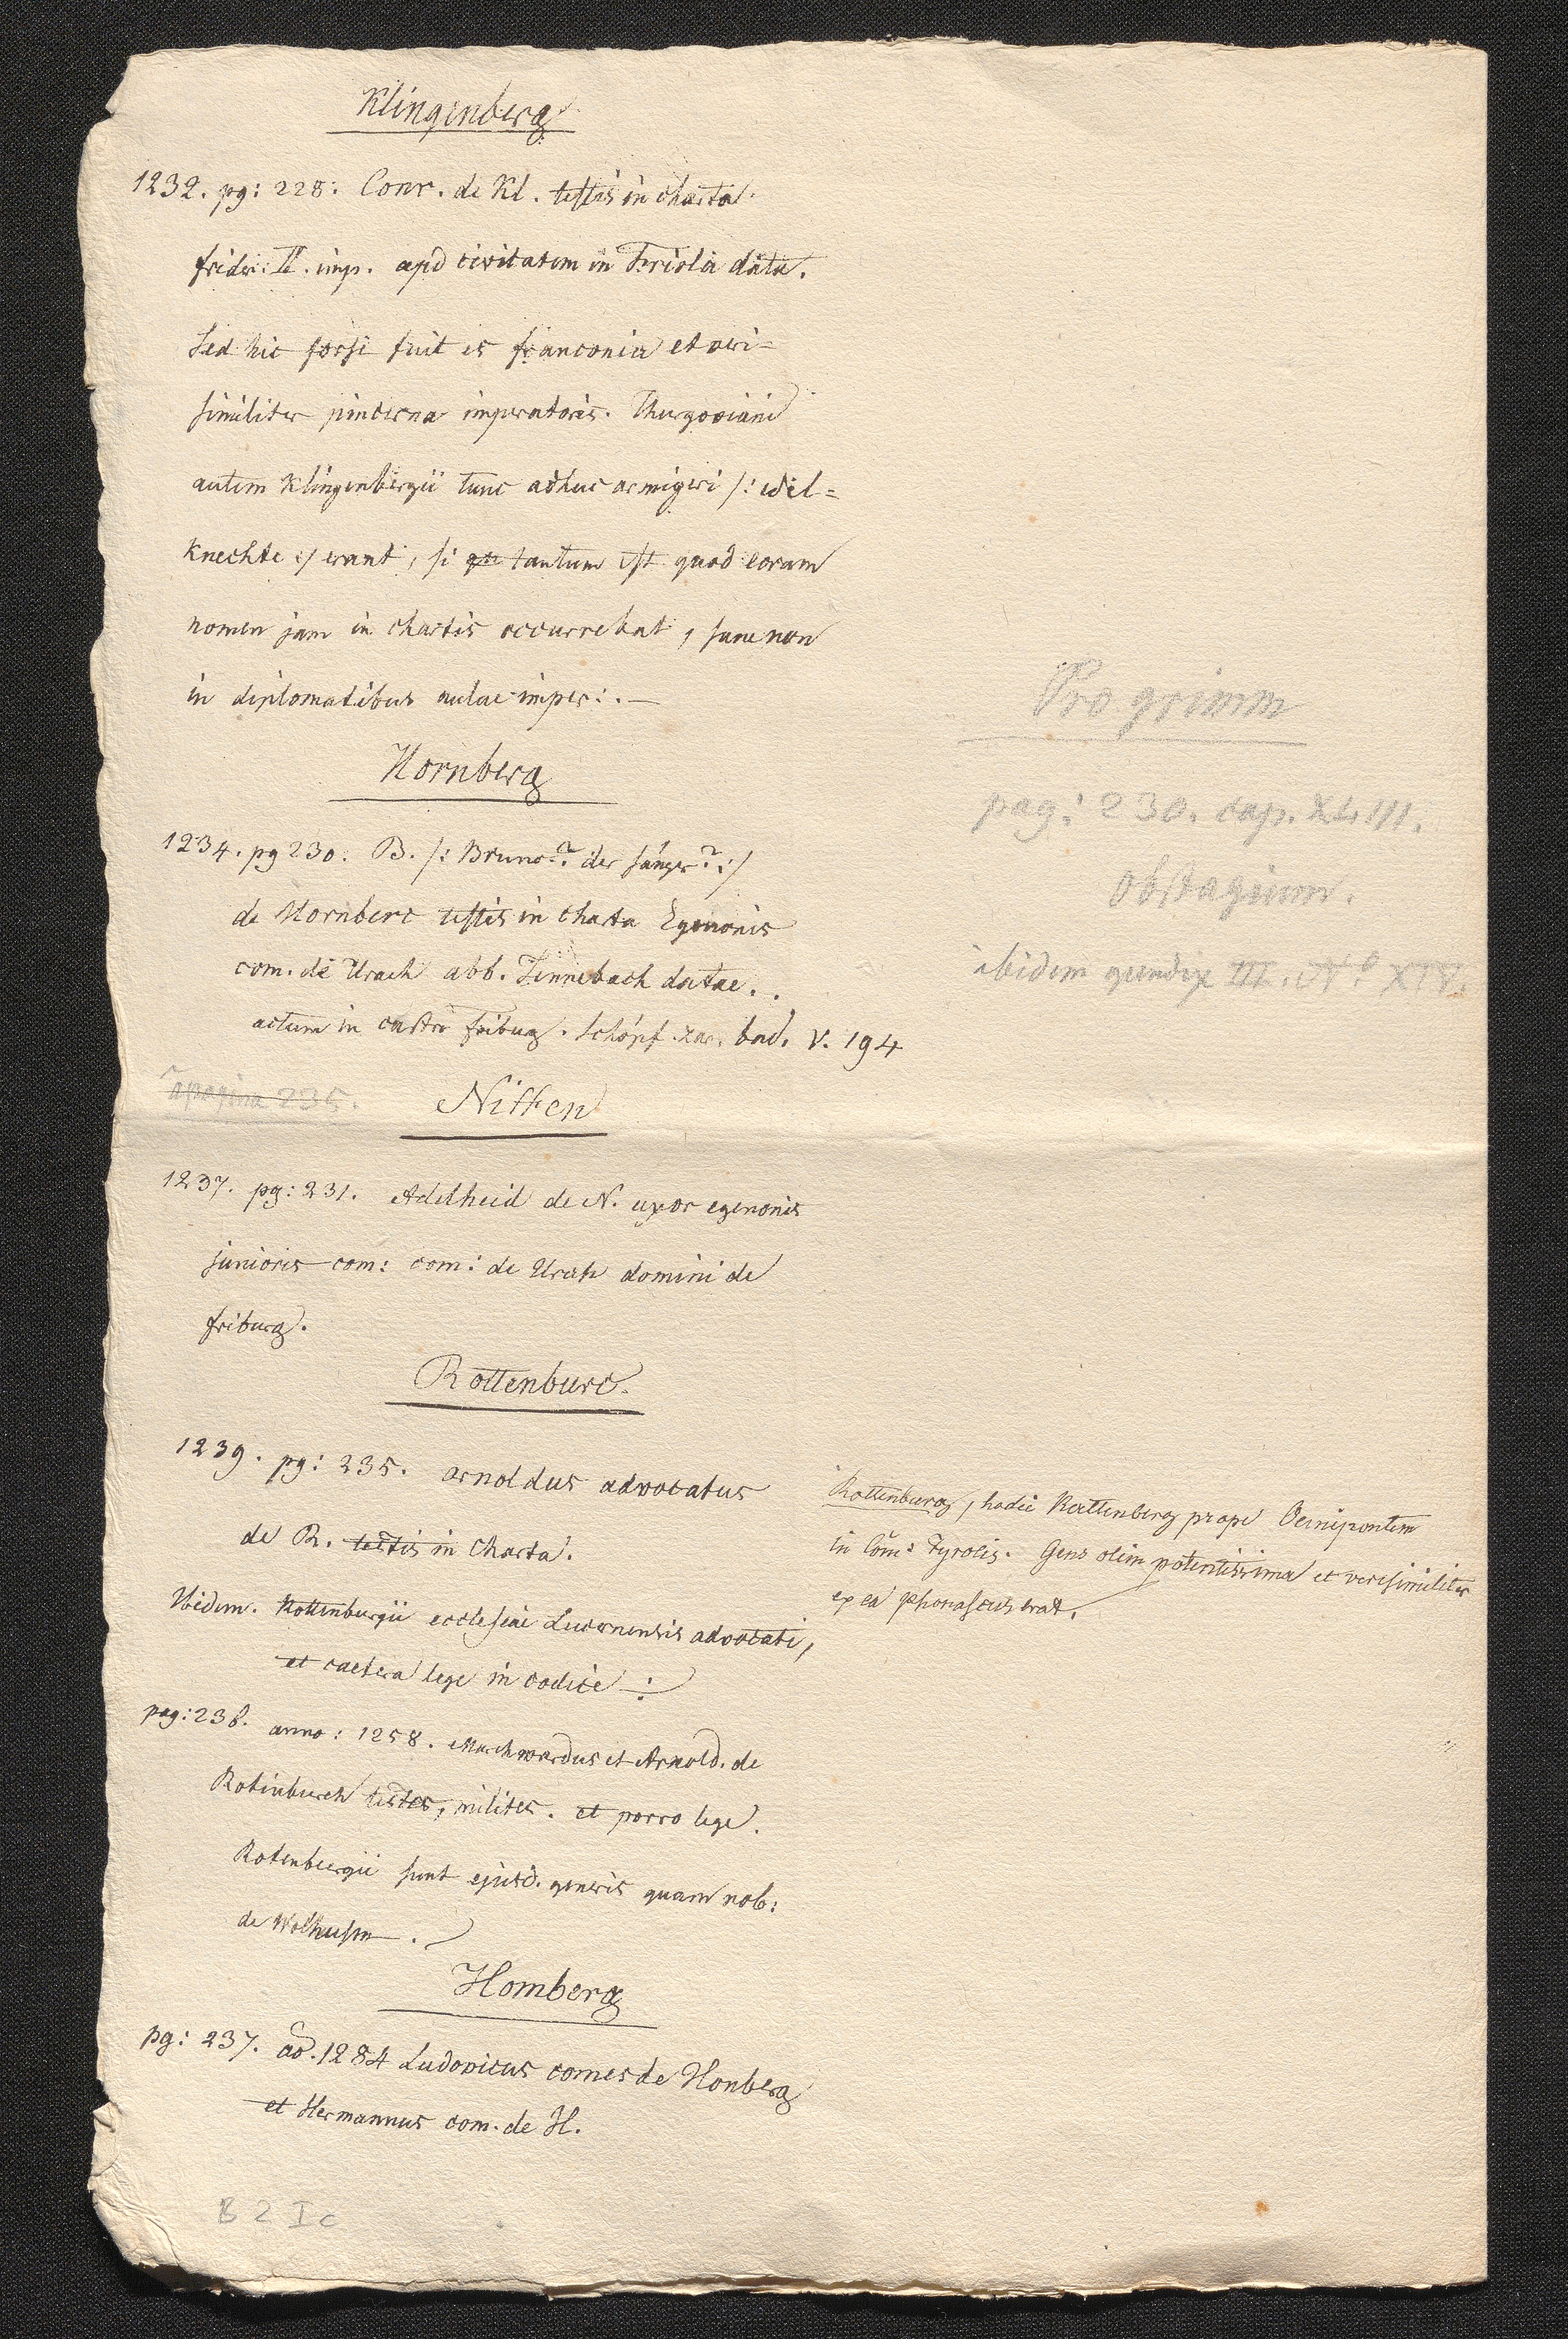 Klingenberg
1232. pg: 228. Conr. de Kl. testis in charta
frider: II. imp. apd civitatem in Friola data.
Sed hic forsi fuit is franconia et veri=
similiter pincerna imperatoris. Thurgoviani
autem Klingenbergii tunc adhuc armigeri /: edel=
knechte :/ erant, si tantum est quod eorum
nomen jam in chartis occurrebat, sane non
in diplomatibus aulae imper:. —
Hornberg
1234. pg 230. B. /: Bruno? der sänger? :/
de Hornberc testis in charta Egenonis
com. de Urach abb. Tennebach datae..
actum in castro friburg. Schöpf. zar. bad. V. 194
a pagina 235.
Niffen
1237. pg: 231. Adelheid de N. uxor egenonis
junioris com: com: de Urah domini de
friburg.
Rottenburc.
1239. pg: 235. arnoldus advocatus
de R. testis in Charta.
Ibidem. Rottenburgii ecclesiae Lucernensis advocati,
et caetera lege in codice
pag: 238. anno: 1258. Marchwardus et Arnold. de
Rotinburch testes, milites. et porro lege.
Rotenburgii sunt ejusd. generis quam nob:
de Wolhusen.
Homberg
pg: 237. ao. 1284 Ludovicus comes de Honberg
et Hermannus com. de H.
B 2 I c
Pro grimm
pag: 230. cap. XLIII.
obstagium.
ibidem III. No XIV.
Rottenburg, hodie Rattenberg prope Oenipontem
in Com: Tyrolis. Gens olim potentissima et verisimiliter
ex ea phonascus erat.